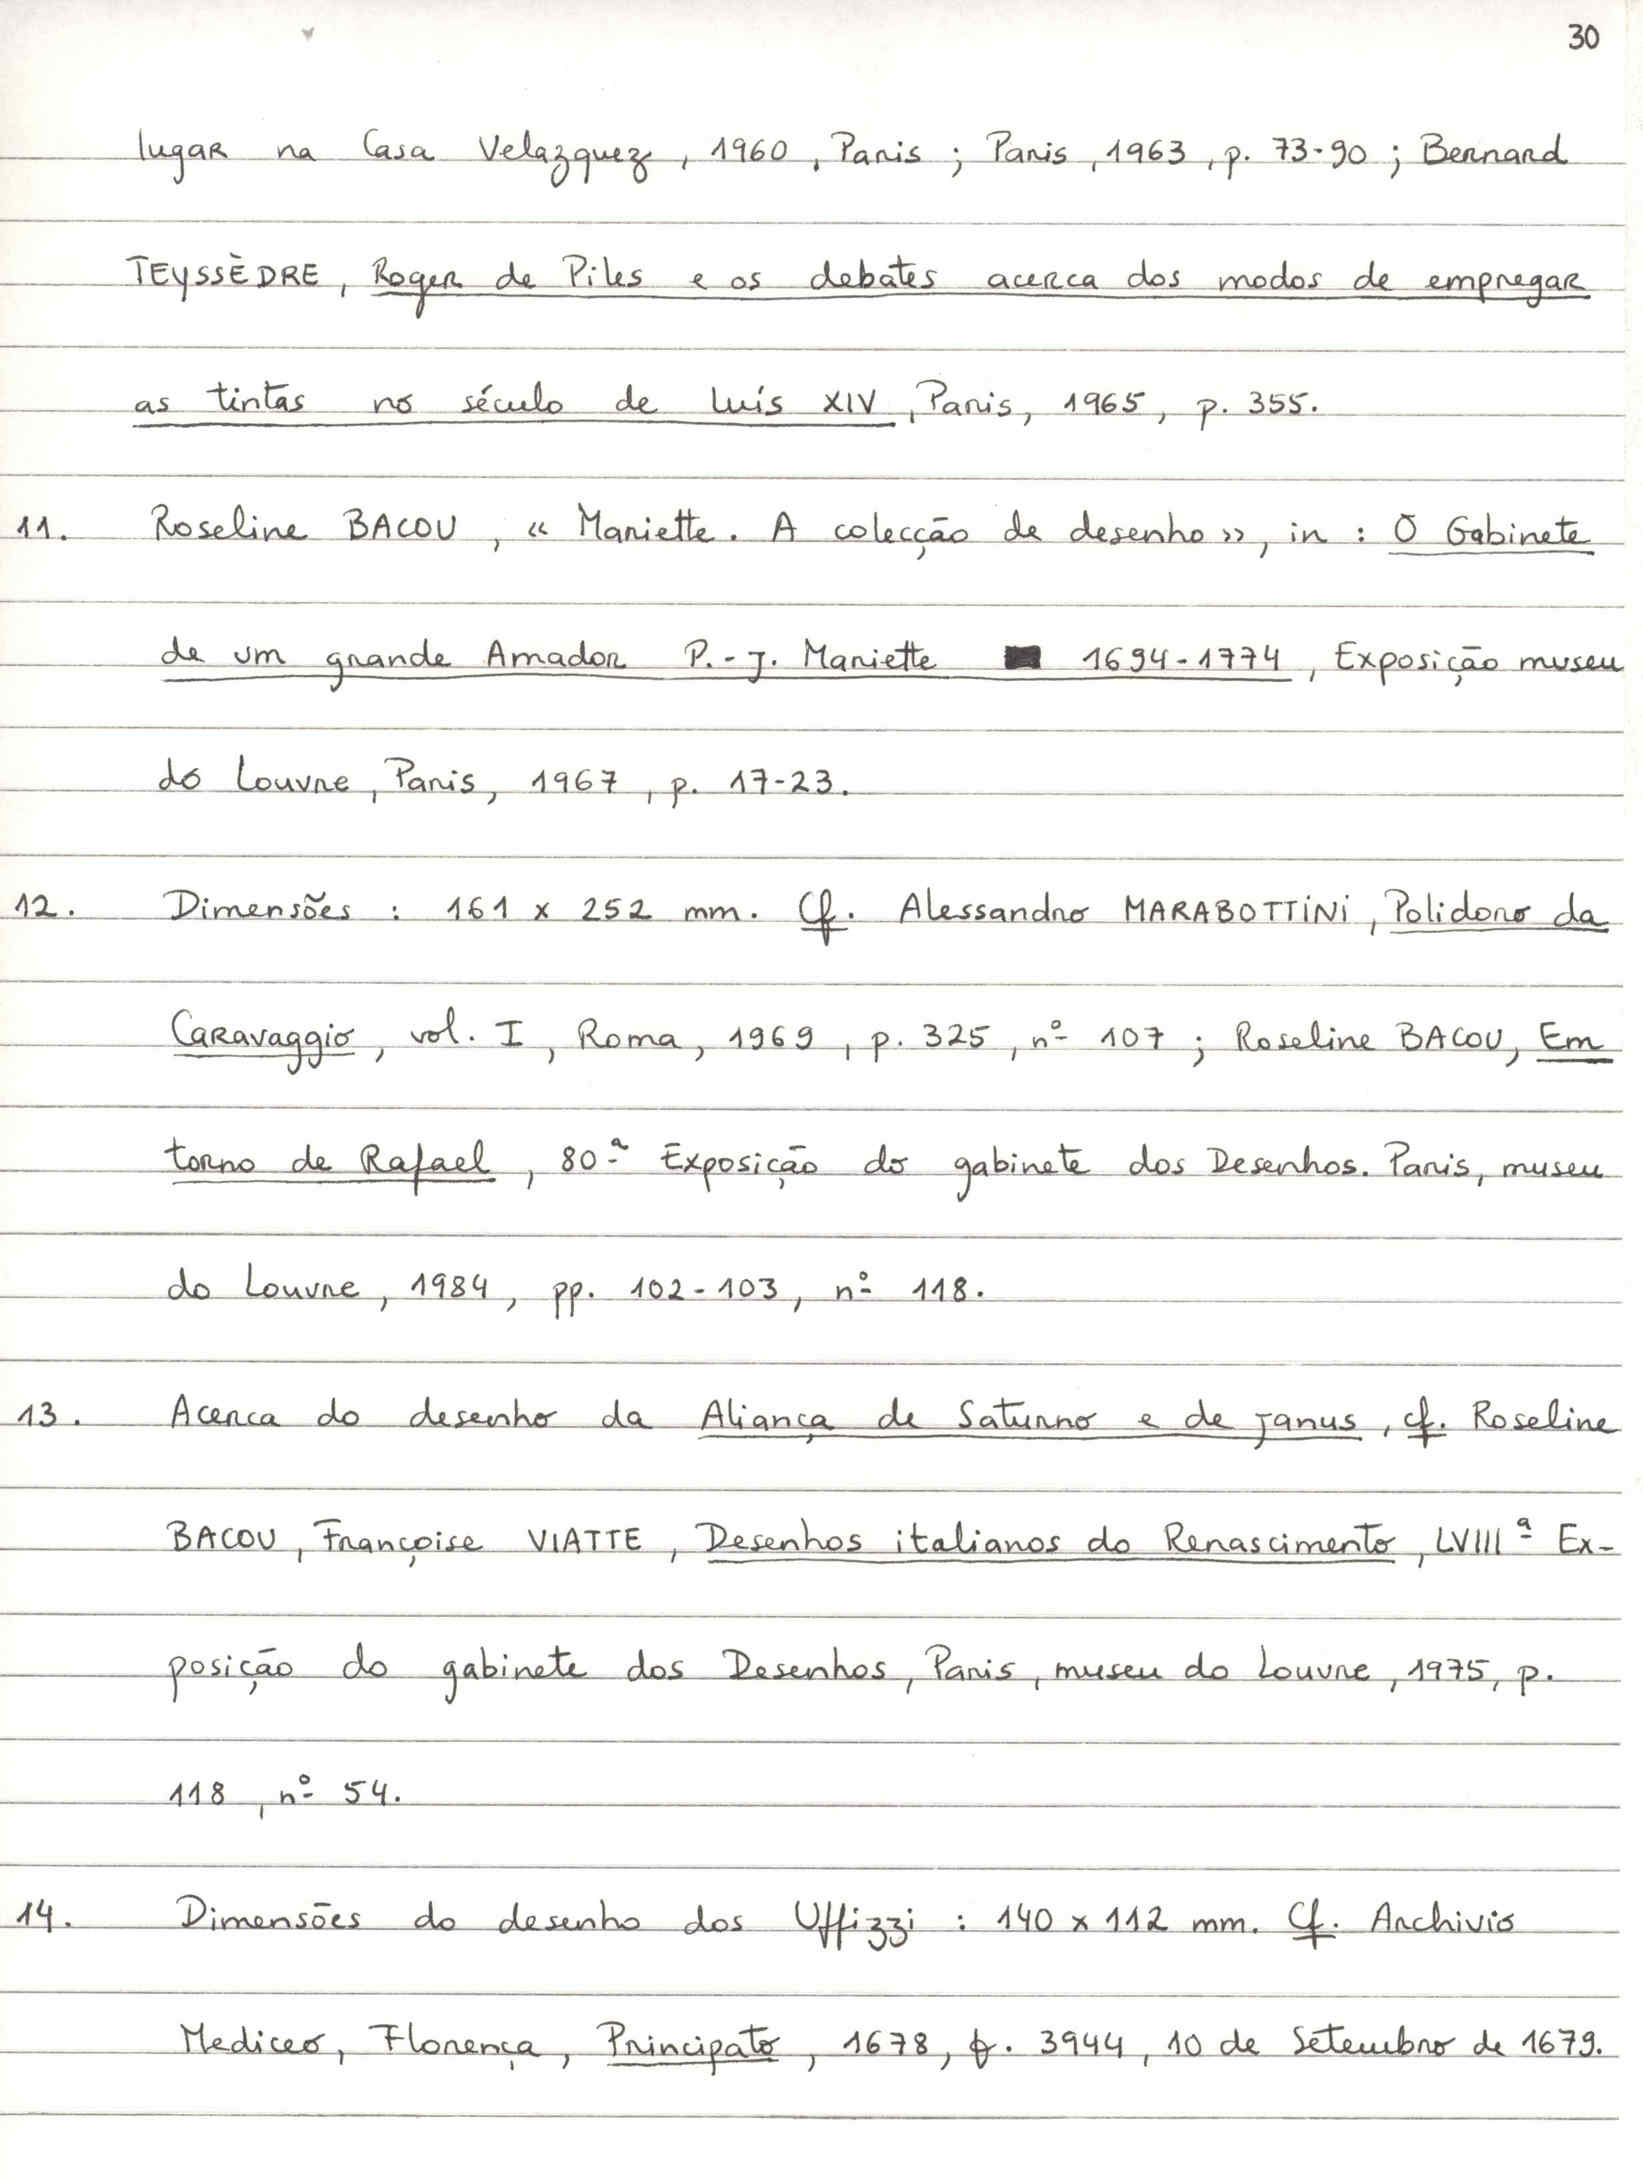 30
lugar na Casa Velazquez, 1960, Paris ; Paris, 1963, p. 73-90 ; Bernard
TEYSSÈDRE, Roger de Piles e os debates acerca dos modos de empregar
as tintas no século de Luís XIV, Paris, 1965, p. 355.
11. Roseline BACOU, « Mariette. A colecção de desenho », in : O Gabinete
de um grande Amador P.-J. Mariette 1694-1774, Exposição museu
do Louvre, Paris, 1967, p. 17-23.
12. Dimensões : 161 x 252 mm. Cf. Alessandro MARABOTTINI, Polidoro da
Caravaggio, vol. I, Roma, 1969, p. 325, nº 107 ; Roseline BACOU, Em
torno de Rafael, 80ª Exposição do gabinete dos Desenhos. Paris, museu
do Louvre, 1984, pp. 102-103, nº 118.
13. Acerca do desenho da Aliança de Saturno e de Janus, cf. Roseline
BACOU, Françoise VIATTE, Desenhos italianos do Renascimento, LVIIIª Ex-
posição do gabinete dos Desenhos, Paris, museu do Louvre, 1975, p.
118, nº 54.
14. Dimensões do desenho dos Uffizzi : 140 x 112 mm. Cf. Archivio
Mediceo, Florença, Principato, 1678, f. 3944, 10 de Setembro de 1679.